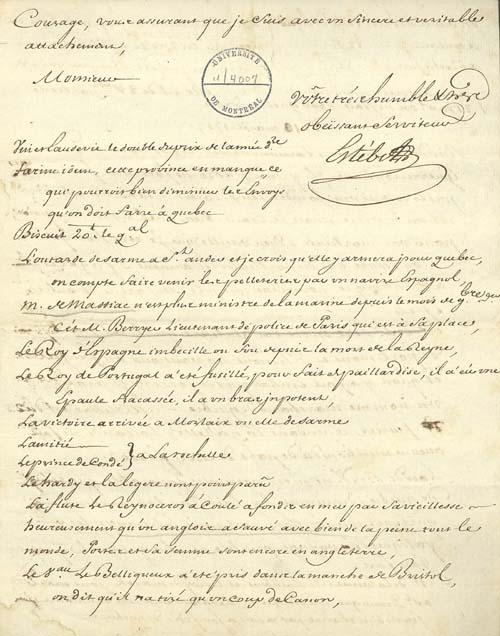 Courage, vous assurant que je suis avec un sincere et veritable
attachement,
Monsieur
UNIVERSITÉ
U/4007
DE MONTRÉAL
Vôtre tres humble & tres
obeissant Serviteur
Estèbe
Vin et Eaudevie le double du prix de l'année dre
farine idem, cette province en manque ce
qui pourroit bien diminuer les Envoys
qu'on doit faire à Quebec
Biscuit 20lt. le qal
L'outarde desarme a St. andes et je crois qu'elle y armera pour Quebec,
on compte faire venir les pelleteries par un navire Espagnol
M. de Massiac n'est plus ministre de la marine depuis le mois de 9bre der
C'est M. Berryer Lieutenant de police de Paris qui est à sa place,
Le Roy d'Espagne imbecille ou fou depuis la mort de la Reyne,
Le Roy de Portugal a été fusillé, pour fait de paillardise, il a eû une
Epaule fracassée, il a un bras inpotent,
La victoire arrivée a Morlaix ou elle desarme
L'amitié
Le prince de Condé } a La rochelle
Le hardy et la legere n'ont point parû
La flute Le Reynoceros à Coulé a fond en mer par sa vieillesse
heureusement qu'un anglois a sauvé avec bien de la peine tout le
monde, Portier et sa femme sont encore en angleterre,
Le Vau. Le Belliqueux a été pris dans la manche de Bristol,
on dit qu'il n'a tiré qu'un coup de Canon,